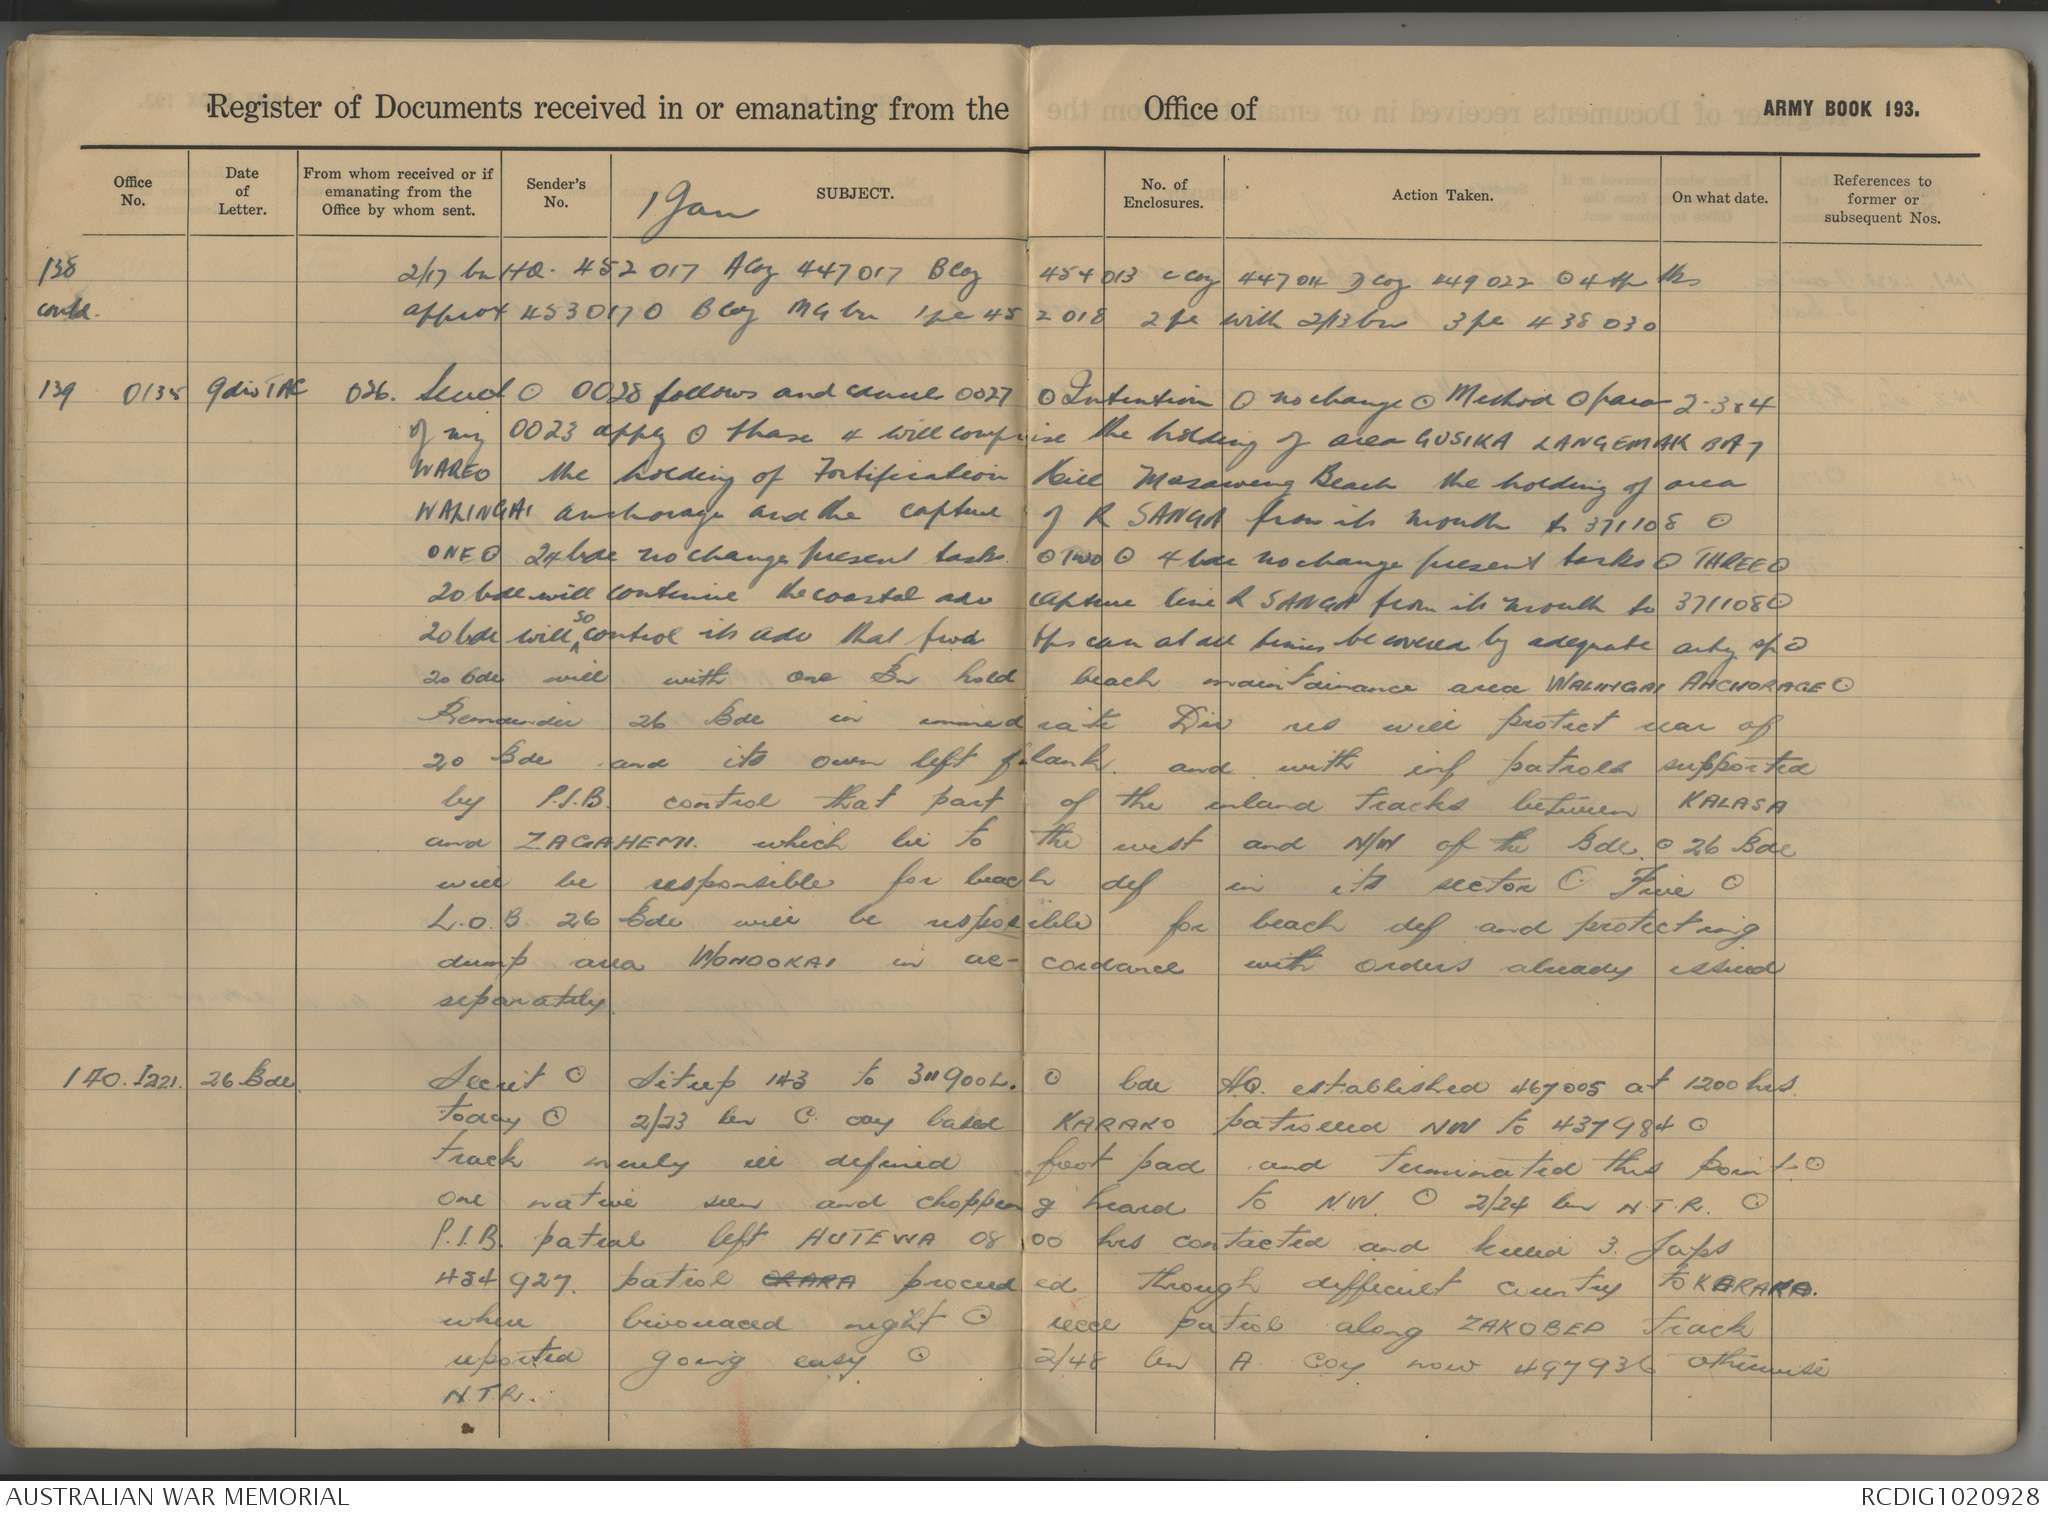 Register of Documents received in or emanating from the Office of ARMY BOOK 193.
Office No. Date of Letter. From whom received or if emanating from the Office by whom sent. Sender's No. SUBJECT. No. of Enclosures. Action Taken. On what date. References to former or subsequent Nos.
1 Jan
138 2/17 bn HQ. 452 017 A Coy 447017 B Coy 454 013 C Coy 447 011 D Coy 449 022 ⊙
contd. approx 453017 ⊙ B Coy MG bn 1 pl 452 018 2 pl with 2/13 bn 3 pl 438 030
139 0135 9 div TAC 026. Send ⊙ 0028 follows and cancel 0027 ⊙ Intention ⊙ no change ⊙ Method ⊙ para 2-3 & 4
of my 0023 apply ⊙ Phase 4 will comprise the holding of area GUSIKA LANGEMAK BAY
WAREO the holding of Fortification Hill Masaweng Beach the holding of area
WALINGAI anchorage and the capture of R SANGA from its mouth to 371108 ⊙
ONE ⊙ 24 bde no change present tasks ⊙ TWO ⊙ 4 bde no change present tasks ⊙ THREE ⊙
20 bde will continue the coastal adv capture line R SANGA from its mouth to 371108 ⊙
20 bde will so control its adv that fwd tps can at all times be covered by adequate arty sp ⊙
20 bde will with one Bn hold beach maintainance area WALINGAI ANCHORAGE ⊙
Remainder 26 Bde in immediate Div res will protect rear of
20 Bde and its own left flank. and with inf patrols supported
by P.I.B. control that part of the inland tracks between KALASA
and ZAGAHEMI. which lie to the west and N/W of the Bde. ⊙ 26 Bde
will be responsible for beach def in its sector ⊙ Five ⊙
L.O.B 26 Bde will be resposible for beach def and protecting
dump area WONOOKAI in ac-cordance with orders already issued
separately.
140. I221. 26 Bde Secret ⊙ Sitrep 143 to 311900L. ⊙ bde HQ. established 467005 at 1200 hrs.
today ⊙ 2/23 bn C. coy based KARAKO patrolled NW to 437984 ⊙
track merely ill defined foot pad and terminated this point ⊙
one native seen and chopping heard to N.W. ⊙ 2/24 bn N.T.R. ⊙
P.I.B. patrol left HUTEWA 0800 hrs contacted and killed 3. Japs
434 927. patrol OKARA proceeded through difficult country to KARAKO.
where bivouaced night ⊙ recce patrol along ZAKOBEP track
reported going easy ⊙ 2/48 bn A. coy now 497936 otherwise
N.T.R.
AUSTRALIAN WAR MEMORIAL RCDIG1020928